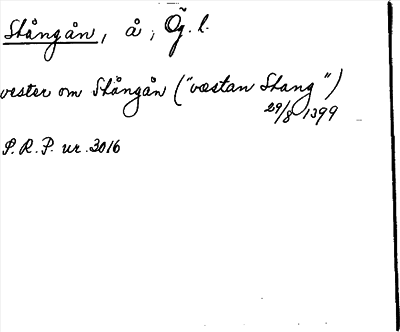 Stångån, å, Ög. l.
vester om Stångån ("væstan Stang")
29/8 1399
P.R.P. nr. 3016